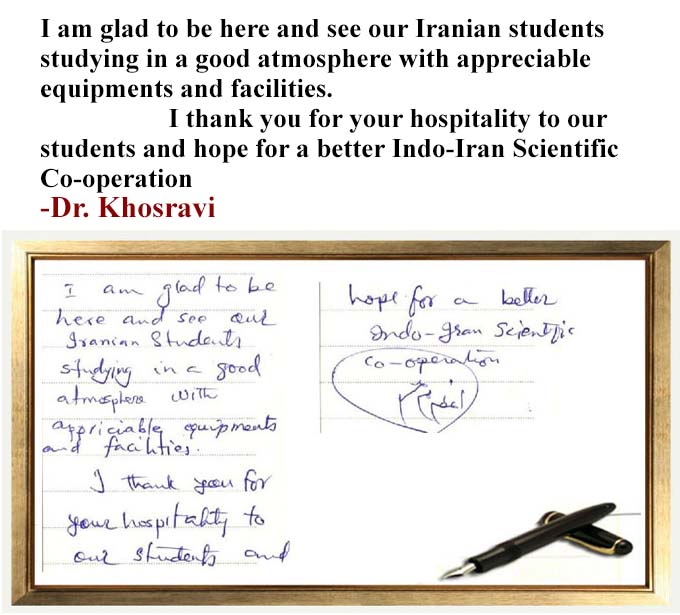 I am glad to be here and see our Iranian students
studying in a good atmosphere with appreciable
equipments and facilities.
I thank you for your hospitality to our
students and hope for a better Indo-Iran Scientific
Co-operation
-Dr. Khosravi
I am glad to be
here and see our
Iranian Students
studying in a good
atmosphere with
appriciable equipments
and facilities.
I thank you for
your hospitality to
our students and
hope for a better
Indo-Iran Scientific
co-operation